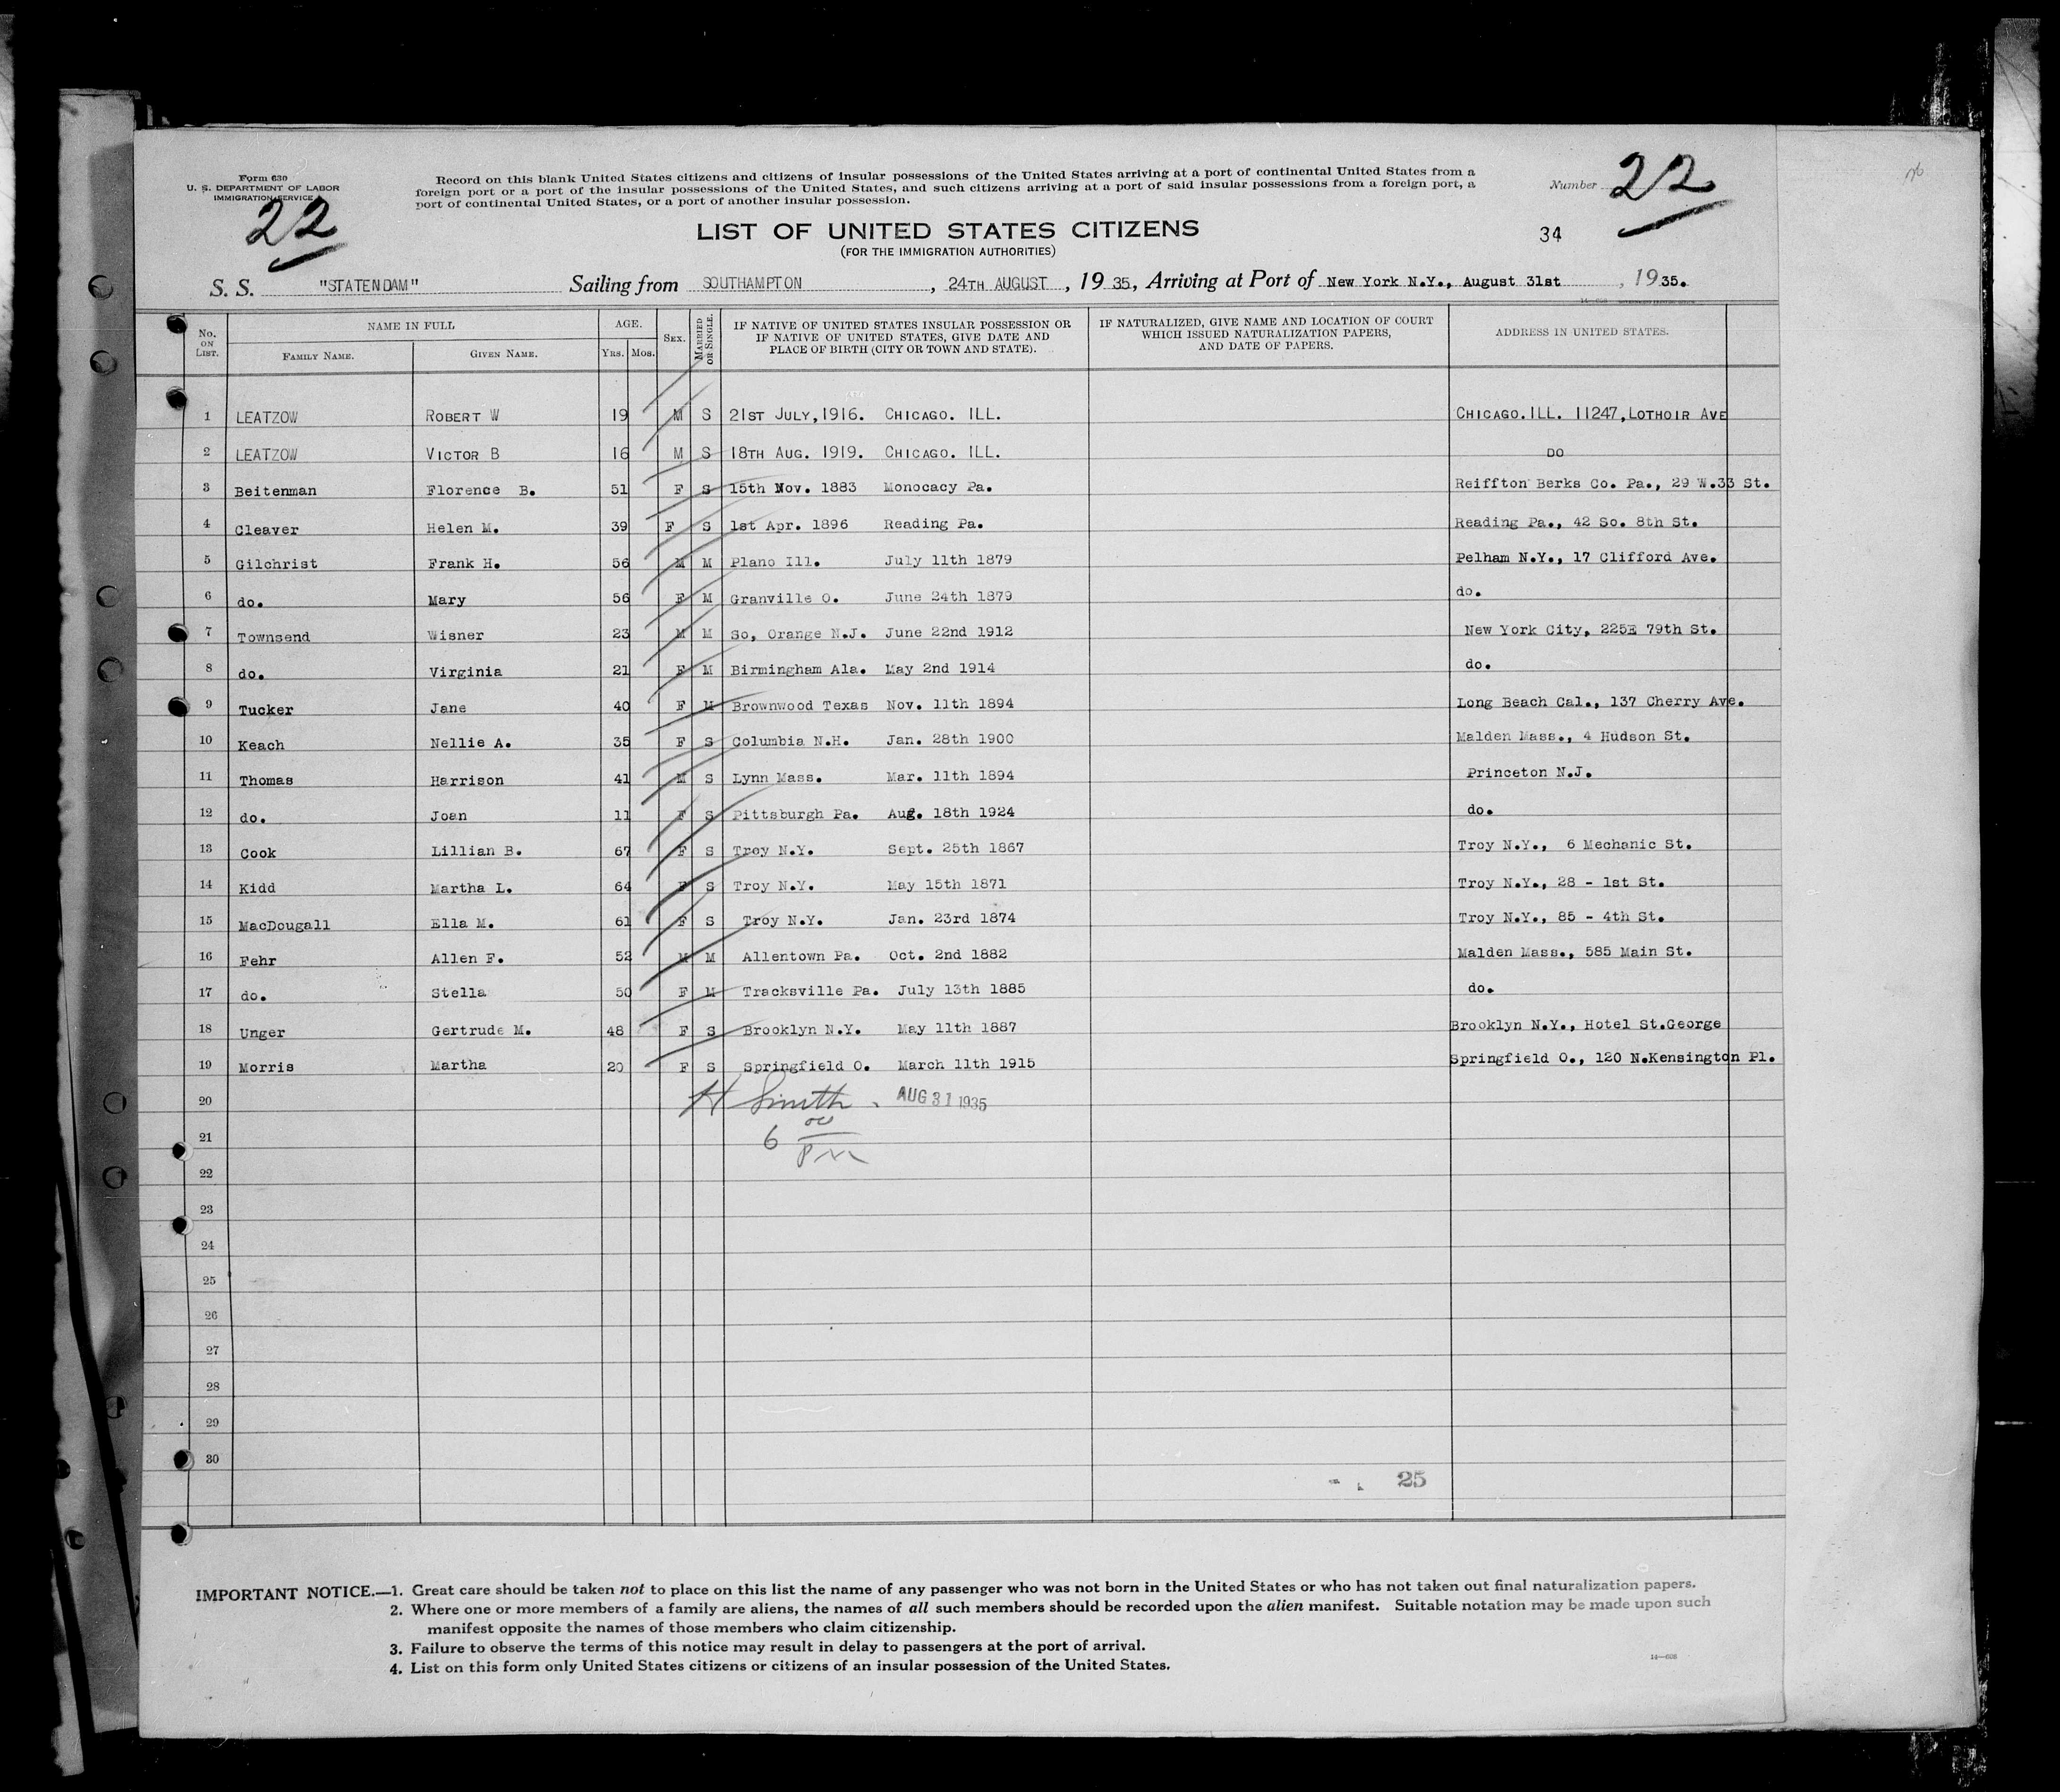 Form 630
U. S. DEPARTMENT OF LABOR
IMMIGRATION SERVICE
22
Record on this blank United States citizens and citizens of insular possessions of the United States arriving at a port of continental United States from a
foreign port or a port of the insular possessions of the United States, and such citizens arriving at a port of said insular possessions from a foreign port, a
port of continental United States, or a port of another insular possession.
Number 22
LIST OF UNITED STATES CITIZENS
(FOR THE IMMIGRATION AUTHORITIES)
34
S. S. "STATENDAM" Sailing from SOUTHAMPTON, 24TH AUGUST, 19 35, Arriving at Port of New York N.Y., August 31st, 19 35.
No. ON LIST. NAME IN FULL FAMILY NAME. GIVEN NAME. AGE. YRS. MOS. SEX. MARRIED OR SINGLE. IF NATIVE OF UNITED STATES INSULAR POSSESSION OR IF NATIVE OF UNITED STATES, GIVE DATE AND PLACE OF BIRTH (CITY OR TOWN AND STATE). IF NATURALIZED, GIVE NAME AND LOCATION OF COURT WHICH ISSUED NATURALIZATION PAPERS, AND DATE OF PAPERS. ADDRESS IN UNITED STATES.
1 LEATZOW ROBERT W 19 M S 21ST JULY, 1916. CHICAGO. ILL. CHICAGO. ILL. 11247, LOTHOIR AVE
2 LEATZOW VICTOR B 16 M S 18TH AUG. 1919. CHICAGO. ILL. DO
3 Beitenman Florence B. 51 F S 15th Nov. 1883 Monocacy Pa. Reiffton Berks Co. Pa., 29 W.33 St.
4 Cleaver Helen M. 39 F S 1st Apr. 1896 Reading Pa. Reading Pa., 42 So. 8th St.
5 Gilchrist Frank H. 56 M M Plano Ill. July 11th 1879 Pelham N.Y., 17 Clifford Ave.
6 do. Mary 56 F M Granville O. June 24th 1879 do.
7 Townsend Wisner 23 M M So, Orange N.J. June 22nd 1912 New York City, 225E 79th St.
8 do. Virginia 21 F M Birmingham Ala. May 2nd 1914 do.
9 Tucker Jane 40 F M Brownwood Texas Nov. 11th 1894 Long Beach Cal., 137 Cherry Ave.
10 Keach Nellie A. 35 F S Columbia N.H. Jan. 28th 1900 Malden Mass., 4 Hudson St.
11 Thomas Harrison 41 M S Lynn Mass. Mar. 11th 1894 Princeton N.J.
12 do. Joan 11 F S Pittsburgh Pa. Aug. 18th 1924 do.
13 Cook Lillian B. 67 F S Troy N.Y. Sept. 25th 1867 Troy N.Y., 6 Mechanic St.
14 Kidd Martha L. 64 F S Troy N.Y. May 15th 1871 Troy N.Y., 28 - 1st St.
15 MacDougall Ella M. 61 F S Troy N.Y. Jan. 23rd 1874 Troy N.Y., 85 - 4th St.
16 Fehr Allen F. 52 M M Allentown Pa. Oct. 2nd 1882 Malden Mass., 585 Main St.
17 do. Stella 50 F M Tracksville Pa. July 13th 1885 do.
18 Unger Gertrude M. 48 F S Brooklyn N.Y. May 11th 1887 Brooklyn N.Y., Hotel St.George
19 Morris Martha 20 F S Springfield O. March 11th 1915 Springfield O., 120 N.Kensington Pl.
20 H Smith. AUG 31 1935
21 6 00 PM
22
23
24
25
26
27
28
29
30
25
IMPORTANT NOTICE.—1. Great care should be taken not to place on this list the name of any passenger who was not born in the United States or who has not taken out final naturalization papers.
2. Where one or more members of a family are aliens, the names of all such members should be recorded upon the alien manifest. Suitable notation may be made upon such
manifest opposite the names of those members who claim citizenship.
3. Failure to observe the terms of this notice may result in delay to passengers at the port of arrival.
4. List on this form only United States citizens or citizens of an insular possession of the United States.